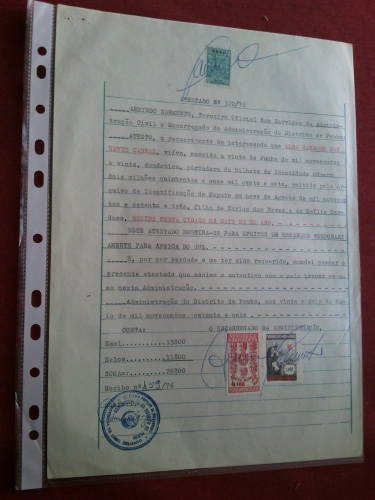 ATESTADO Nº 372/76
ARMINDO SARMENTO, Terceiro Oficial dos Serviços de Administ-
tração Civil e Encarregado da Administração do Distrito de Pemba,
ATESTO, a requerimento da interessada que ALDA
NEVES CABRAL, viúva, nascida a vinte de Junho de mil novecentos
e vinte, doméstica, portadora do Bilhete de Identidade número
dois milhões quinhentos e onze mil cento e sete, emitido pelo
quivo de Identificação de Maputo em nove de Agosto de mil noves
e setenta e três, filha de Carlos das Neves e de
doso, RESIDE NESTA CIDADE HÁ MAIS DE UM ANO.
ESTE ATESTADO DESTINA-SE PARA EFEITOS DE
AMENTE PARA ÁFRICA DO SUL.
E, por ser verdade e me ter sido requerido, mandei passar o
presente atestado que assino e autentico com o selo branco em
so nesta Administração.
Administração do Distrito de Pemba, aos vinte e dois de
io de mil novecentos setenta e seis.
CONTA: O ENCARREGADO DA ADMINISTRAÇÃO,
Emol...........15$00
Selos..........11$00
SOMA=:.........26$00
Recibo nº /76